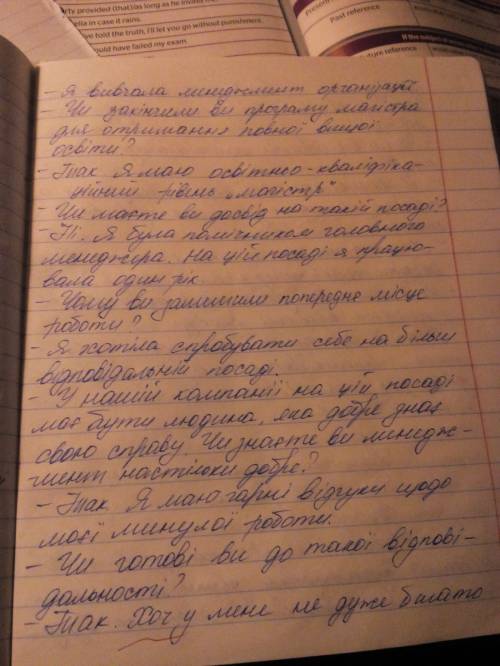 rty provided (that)/as long as he invited me.
ella in case it rains.
ve told the truth, I'll let you go without punishment.
ould have failed my exam.
Past reference
uture reference
- Я вивчала менеджмент організації
- Чи закінчили ви програму магістра
для отримання повної вищої
освіти?
- Так. Я маю освітньо-кваліфіка-
ційний рівень „магістр"
- Чи маєте ви досвід на такій посаді?
- Ні. Я була помічником головного
менеджера. На цій посаді я працю-
вала один рік.
- Чому ви залишили попереднє місце
роботи?
- Я хотіла спробувати себе на більш
відповідальній посаді.
- У нашій компанії на цій посаді
має бути людина, яка добре знає
свою справу. Чи знаєте ви менедж-
мент настільки добре?
- Так. Я маю гарні відгуки щодо
моєї минулої роботи.
- Чи готові ви до такої відпові-
дальності?
- Так. Хоч у мене не дуже багато